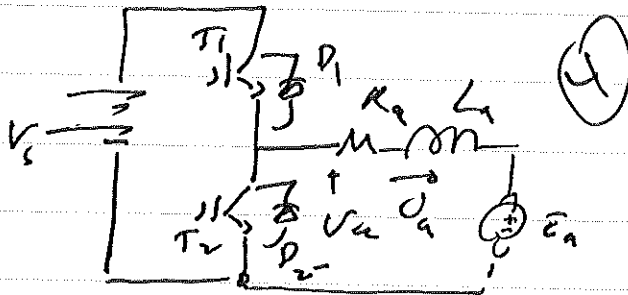 T1 D1
4
Ra La
Vs
T2 D2 Va ia Ea